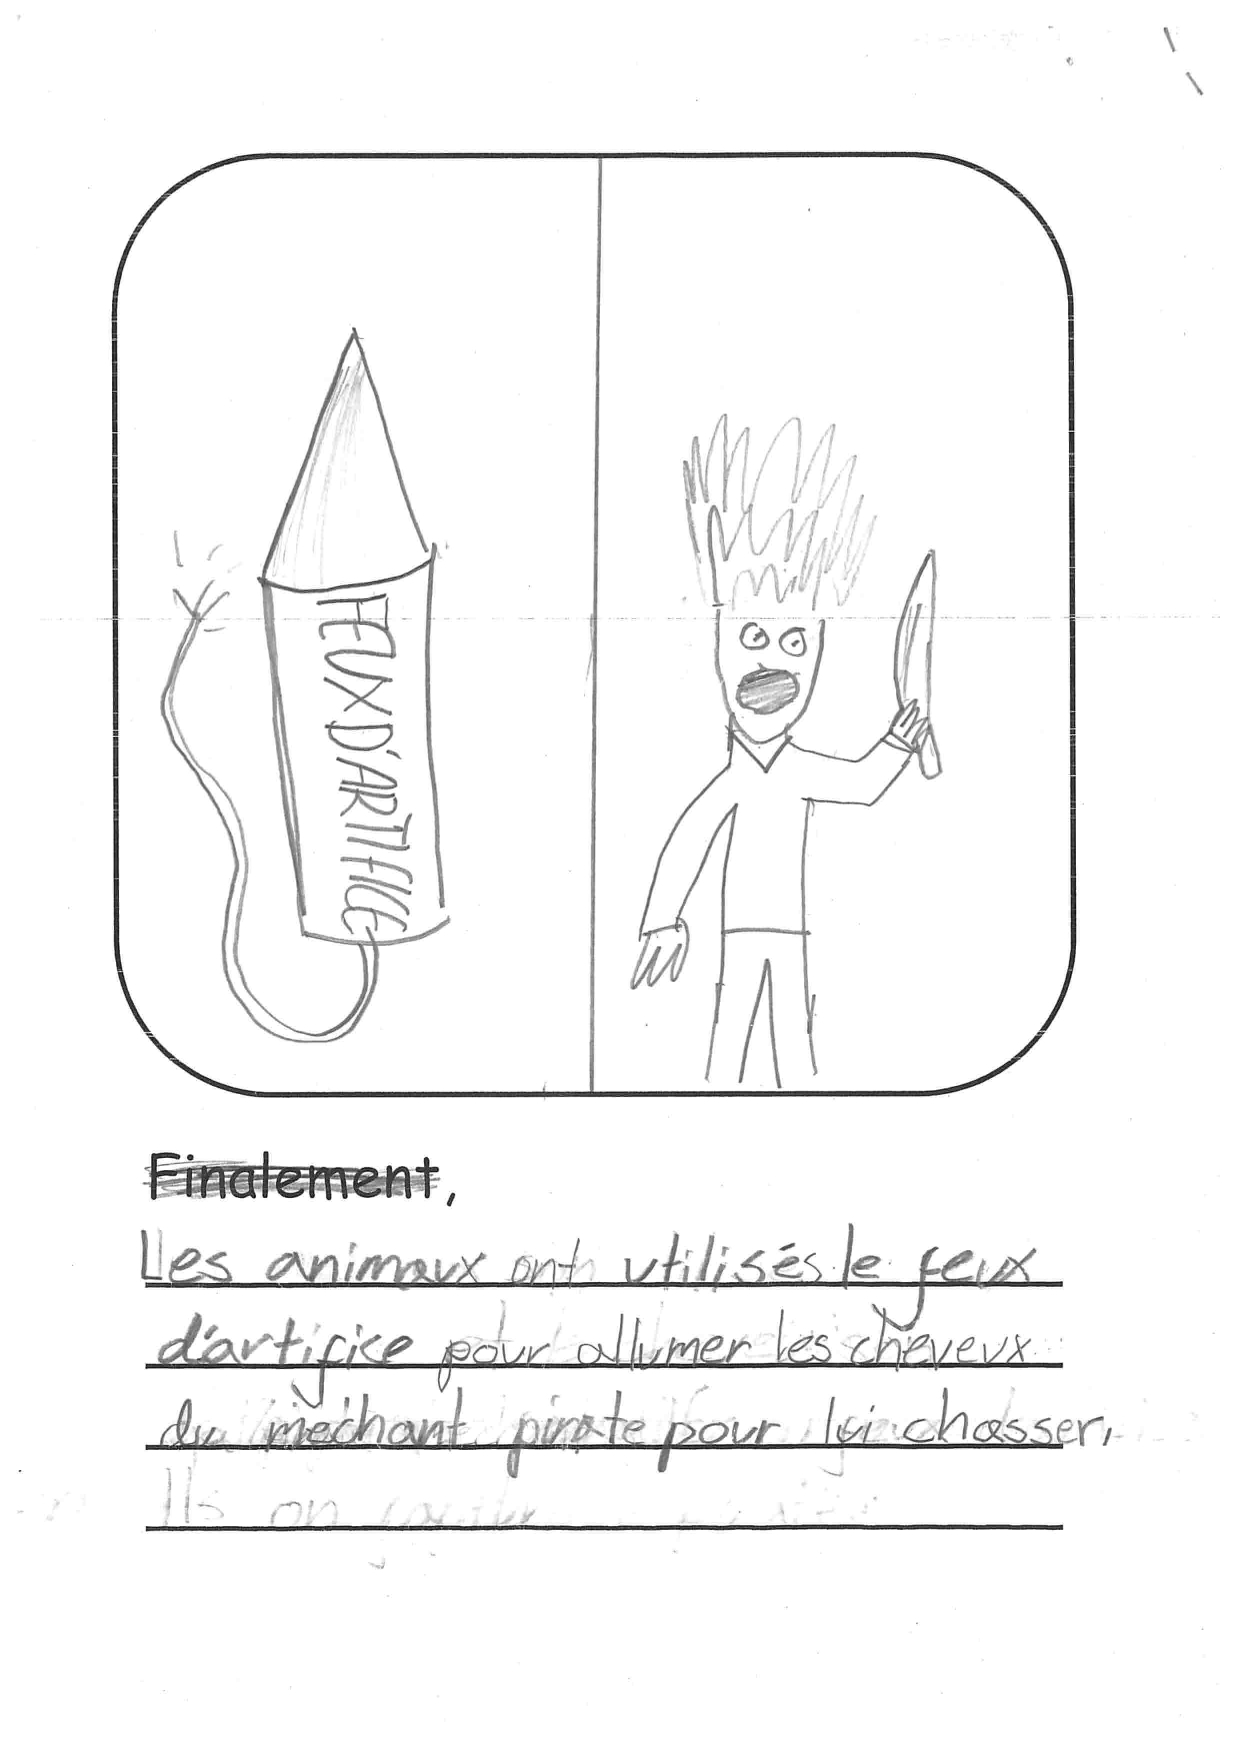 FEUX D'ARTIFICE
Finalement,
Les animaux ont utilisés le feux
d'artifice pour allumer les cheveux
du mechant pirate pour lui chasser,
Ils on